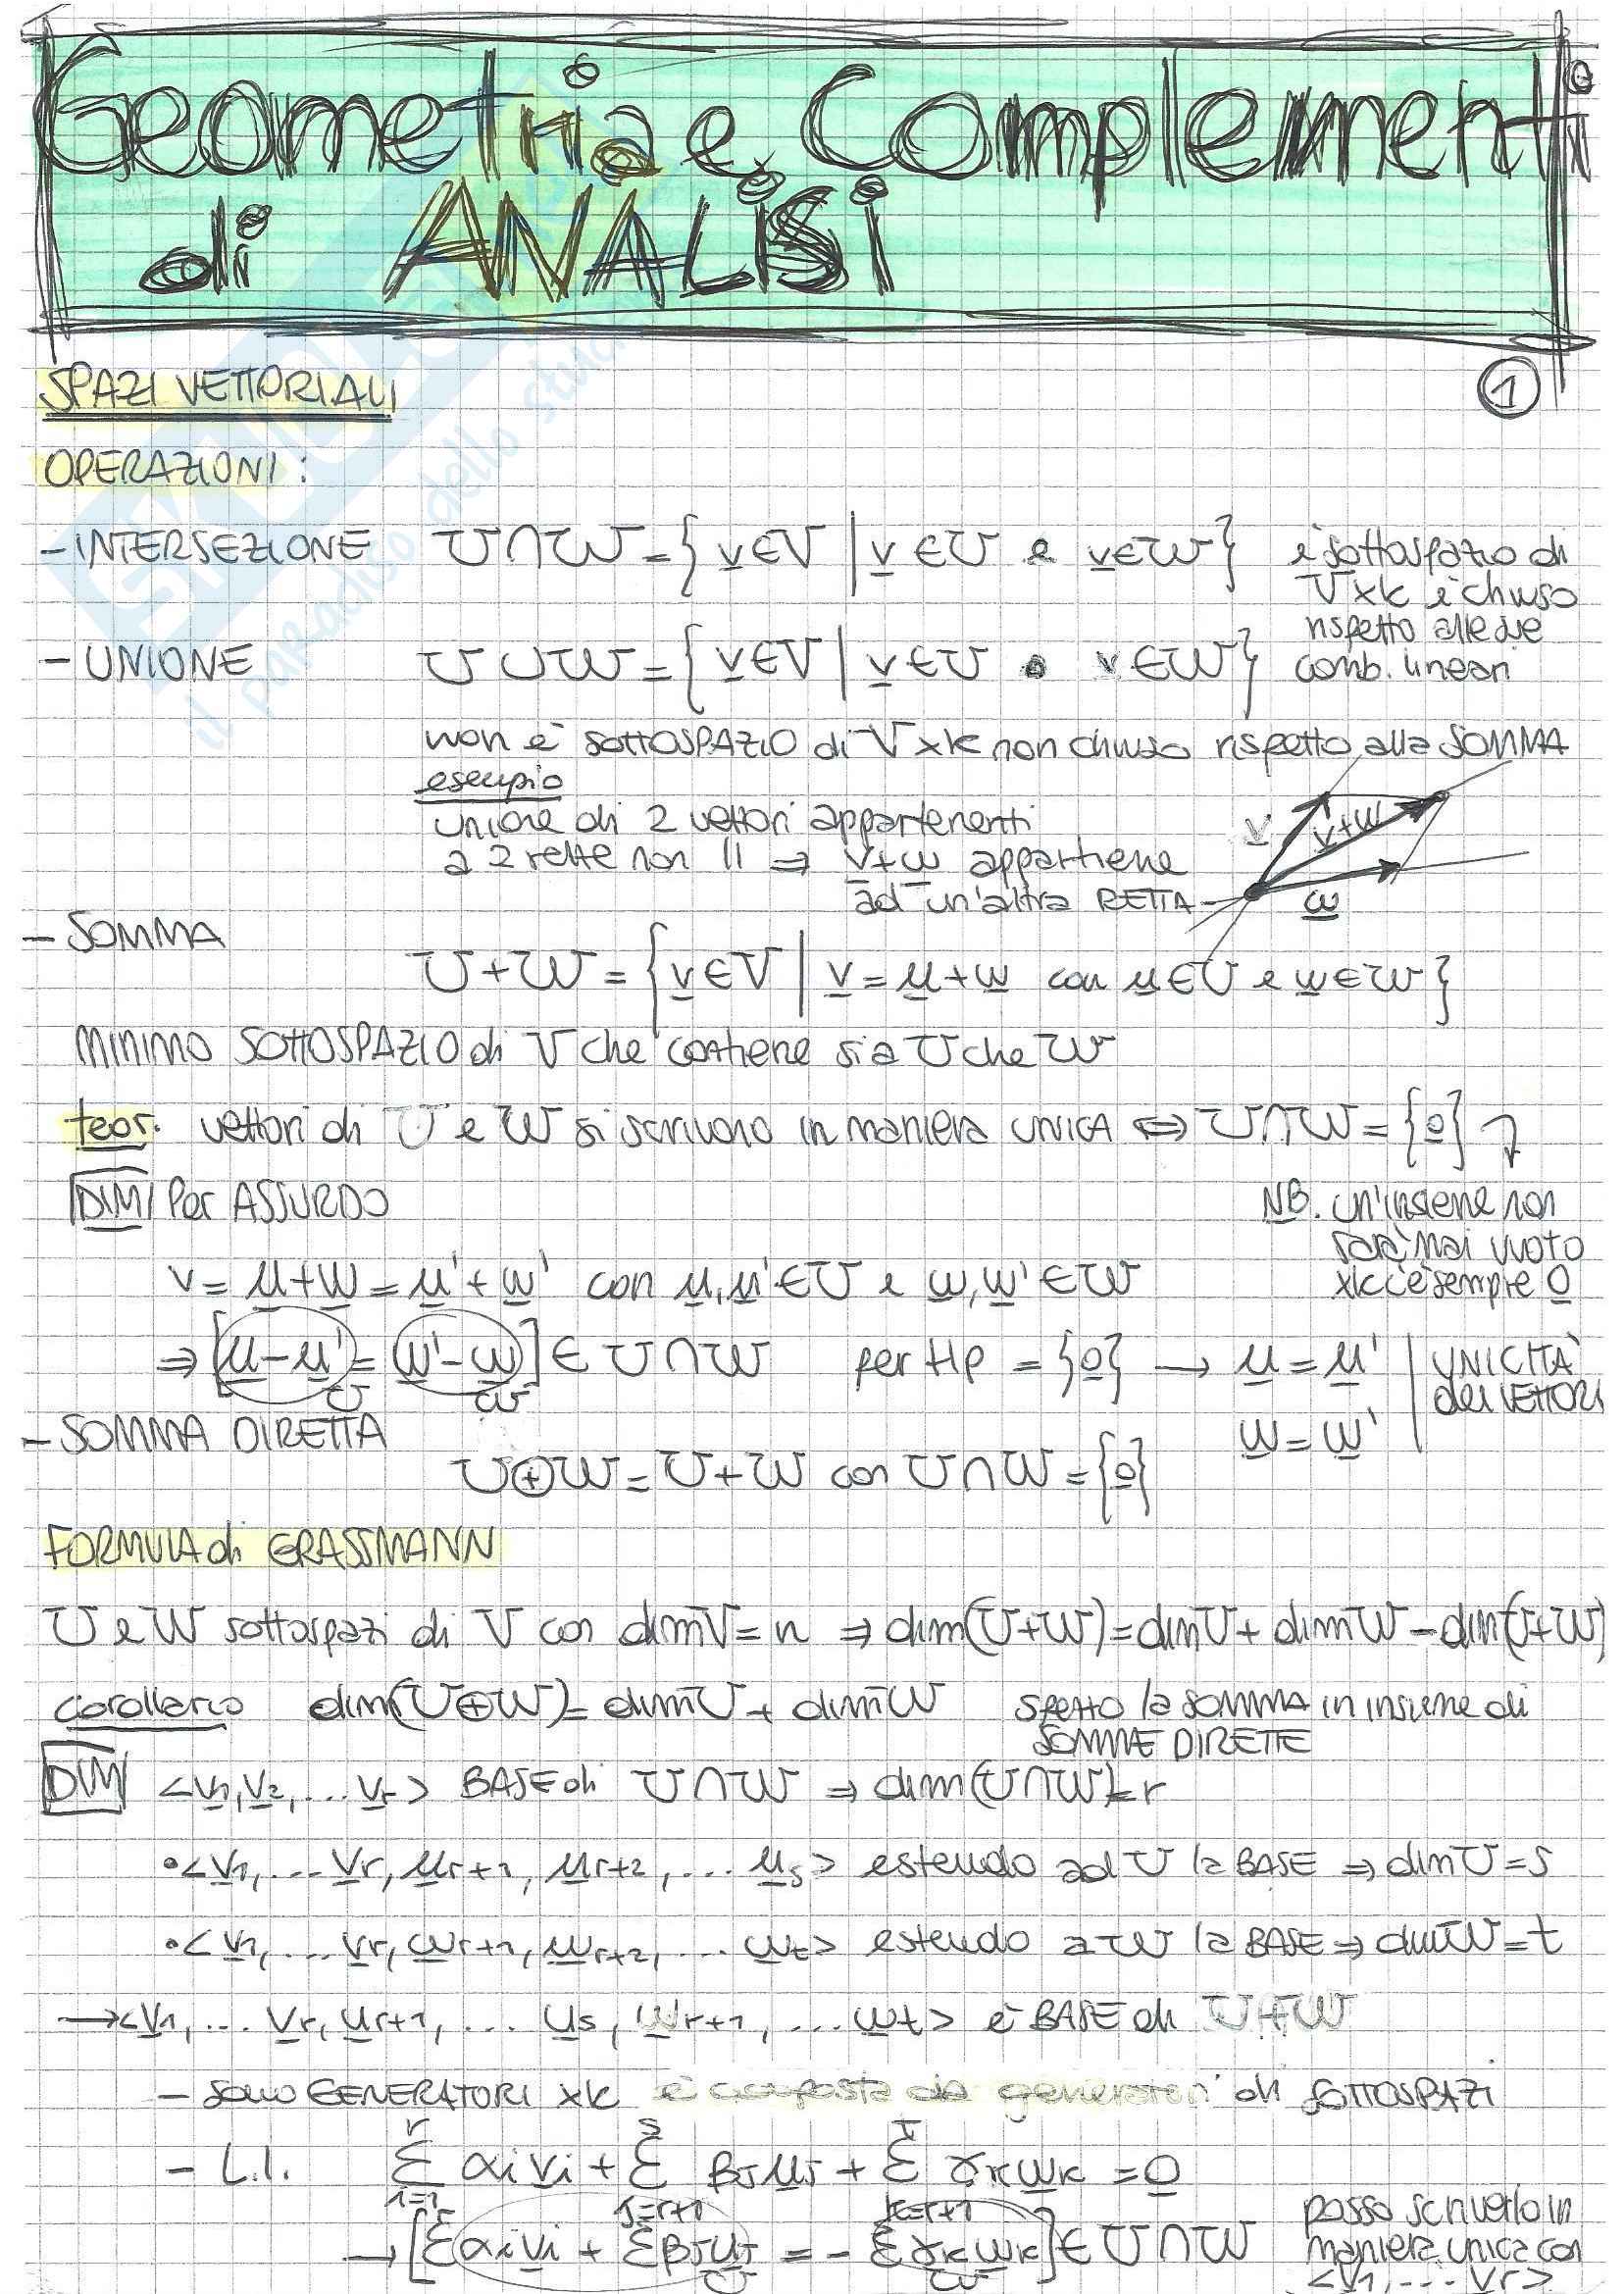 Geometria e Complementi
di ANALISI
1
SPAZI VETTORIALI
OPERAZIONI:
- INTERSEZIONE U∩W = {v∈V | v∈U e v∈W} è sottospazio di
V xk è chiuso
rispetto alle sue
comb. lineari
- UNIONE U∪W = {v∈V | v∈U o v∈W}
non è SOTTOSPAZIO di V xk non chiuso rispetto alla SOMMA
esempio
unione di 2 vettori appartenenti
a 2 rette non || ⇒ v+w appartiene
ad un'altra RETTA
v v+w w
- SOMMA
U+W = {v∈V | v = u+w con u∈U e w∈W}
MINIMO SOTTOSPAZIO di V che contiene sia U che W
teor. vettori di U e W si scrivono in maniera UNICA ⇔ U∩W = {0}
DIM Per ASSURDO
NB. un'insieme non
sarà mai vuoto
xk c'è sempre 0
v = u+w = u'+w' con u,u'∈U e w,w'∈W
⇒ [u-u' = w'-w] ∈ U∩W per Hp = {0} → u = u' | UNICITÀ
dei VETTORI
U W
w = w'
- SOMMA DIRETTA
U⊕W = U+W con U∩W = {0}
FORMULA di GRASSMANN
U e W sottospazi di V con dimV = n ⇒ dim(U+W) = dimU + dimW - dim(U+W)
corollario dim(U⊕W) = dimU + dimW spetto la SOMMA in insieme di
SOMME DIRETTE
DIM <v1, v2, ... vr> BASE di U∩W ⇒ dim(U∩W) = r
• <v1, ... vr, ur+1, ur+2, ... us> estendo ad U la BASE ⇒ dimU = s
• <v1, ... vr, wr+1, wr+2, ... wt> estendo a W la BASE ⇒ dimW = t
→ <v1, ... vr, ur+1, ... us, wr+1, ... wt> è BASE di U+W
- sono GENERATORI xk è composta da generatori di SOTTOSPAZI
- L.I. r Σ i=1 αi vi + s Σ j=r+1 βj uj + t Σ k=r+1 γk wk = 0
→ [Σ αi vi + Σ βj uj = - Σ γk wk] ∈ U∩W
U W
posso scriverlo in
maniera unica con
<v1, ... vr>
SKUOLA
il paradiso dello stud